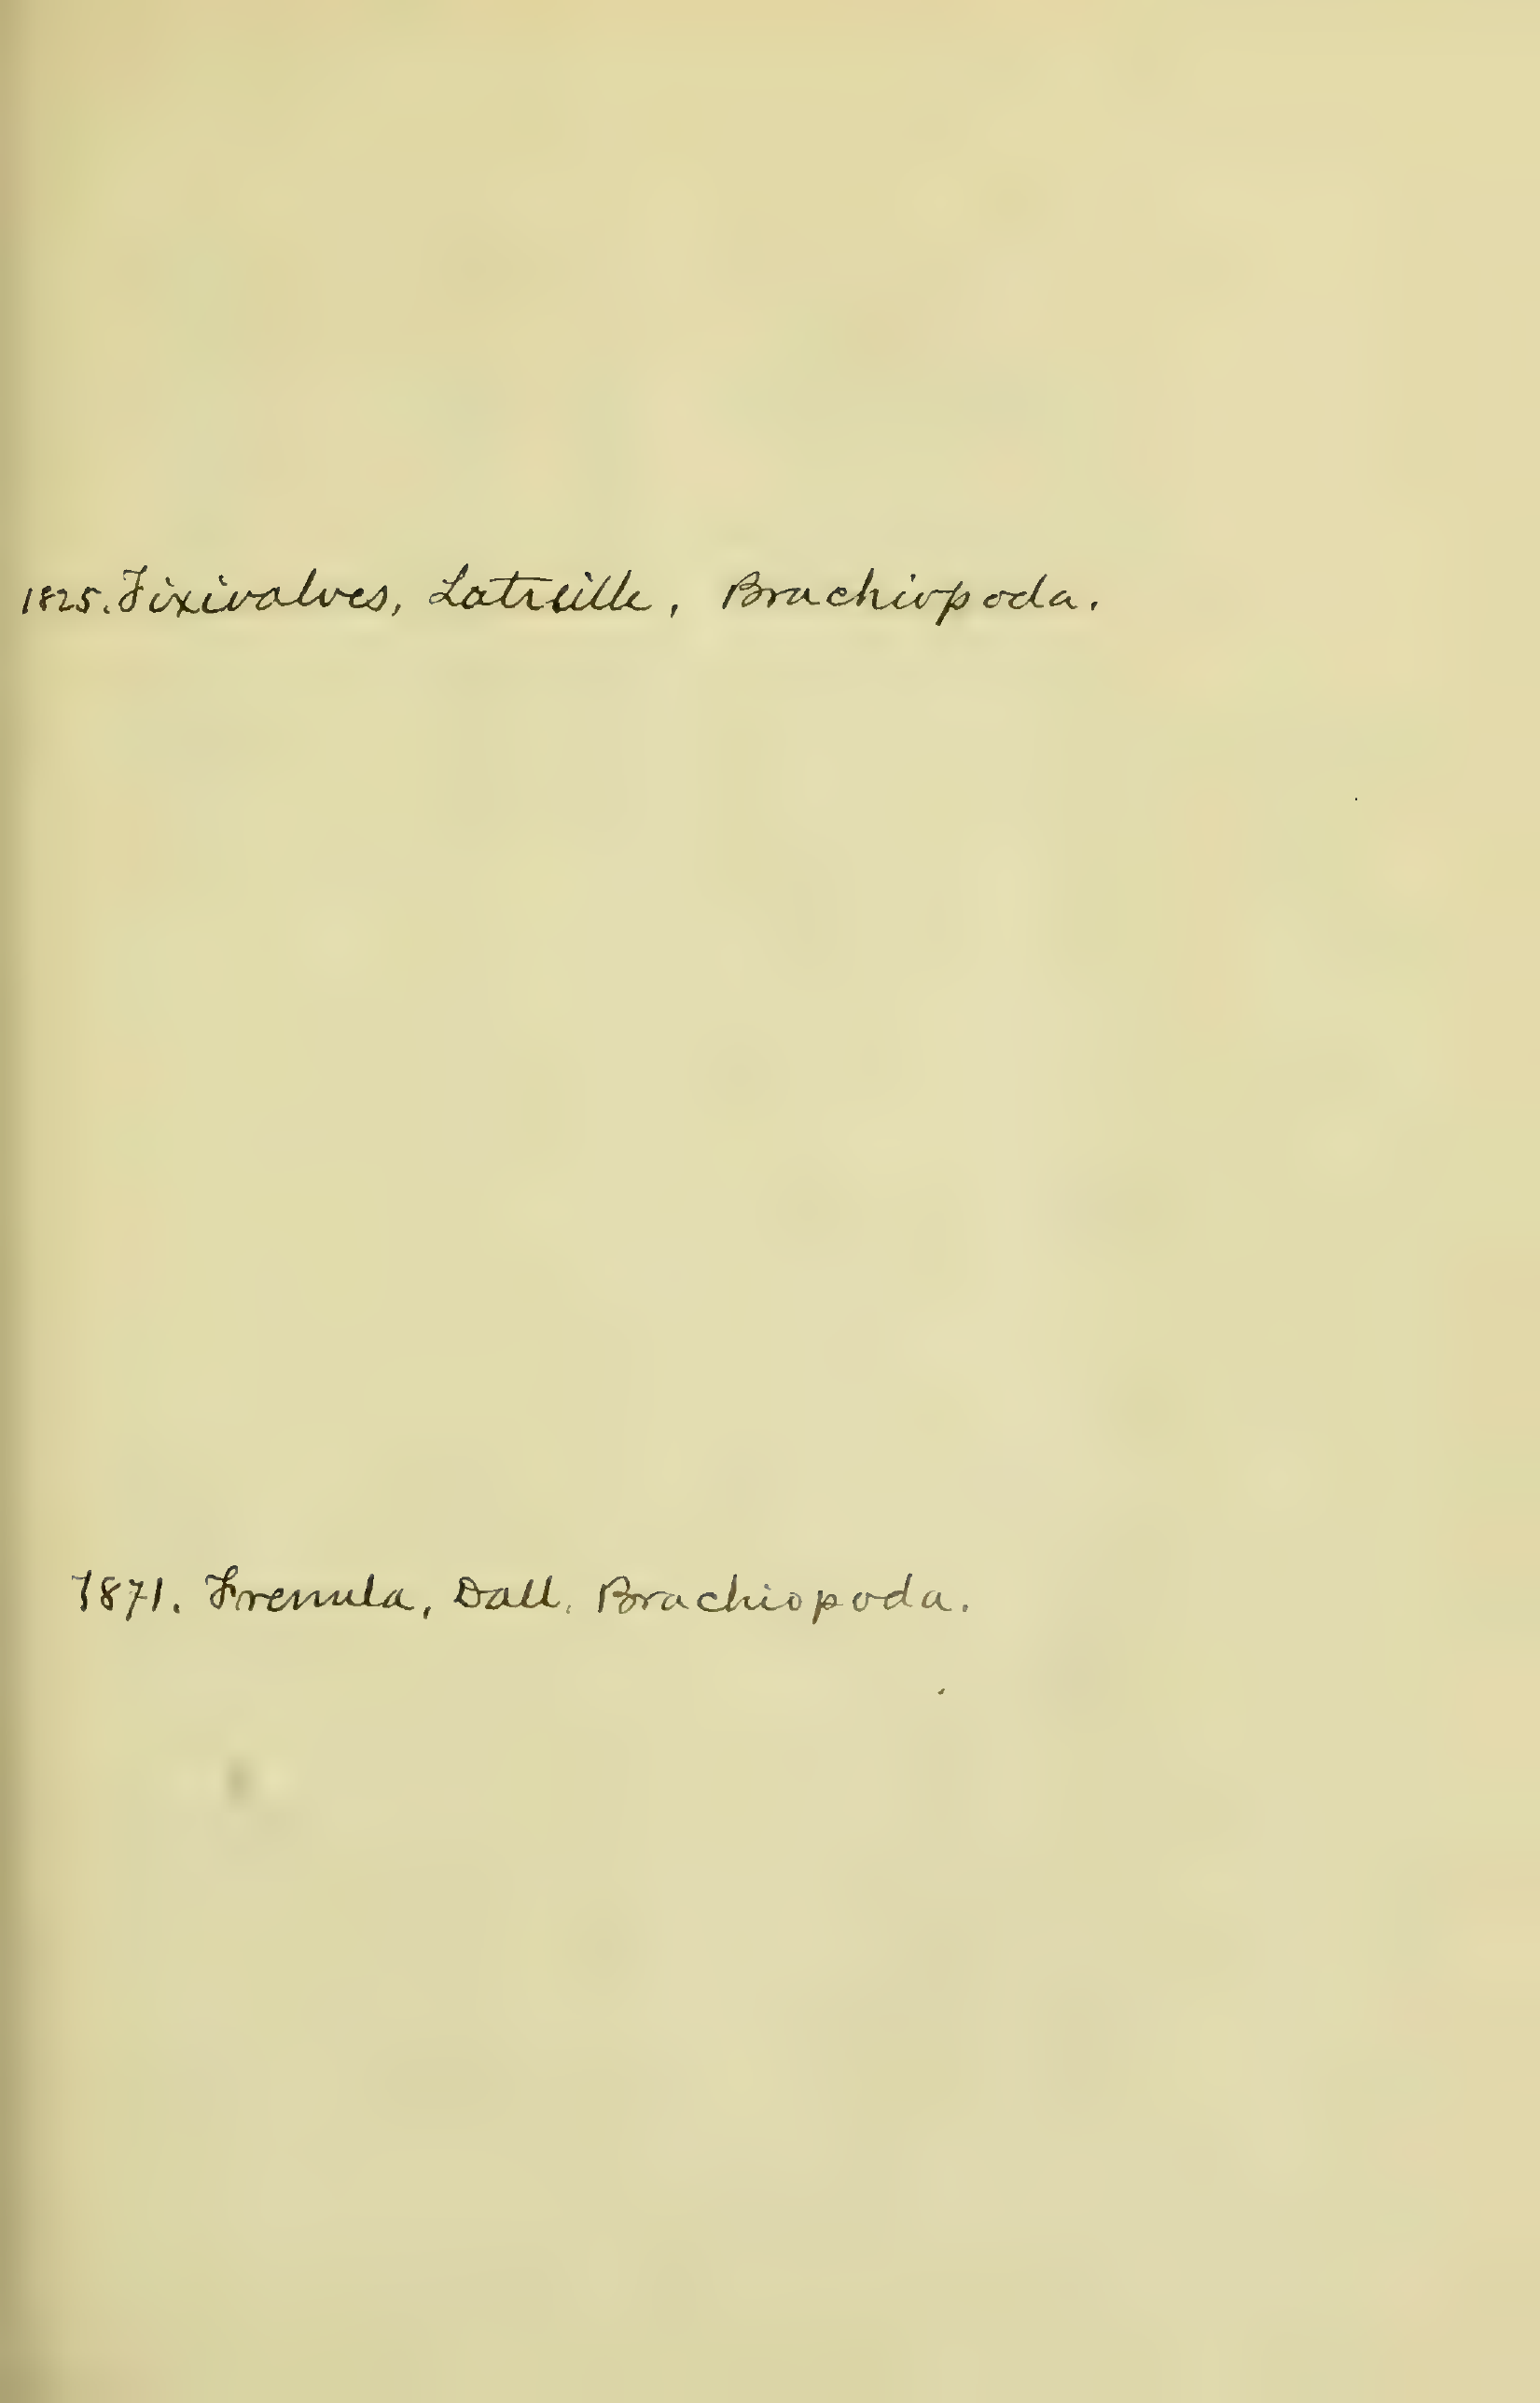 1825. Fixivalves, Latreille, Brachiopoda.
1871. Frenula, Dall. Brachiopoda.